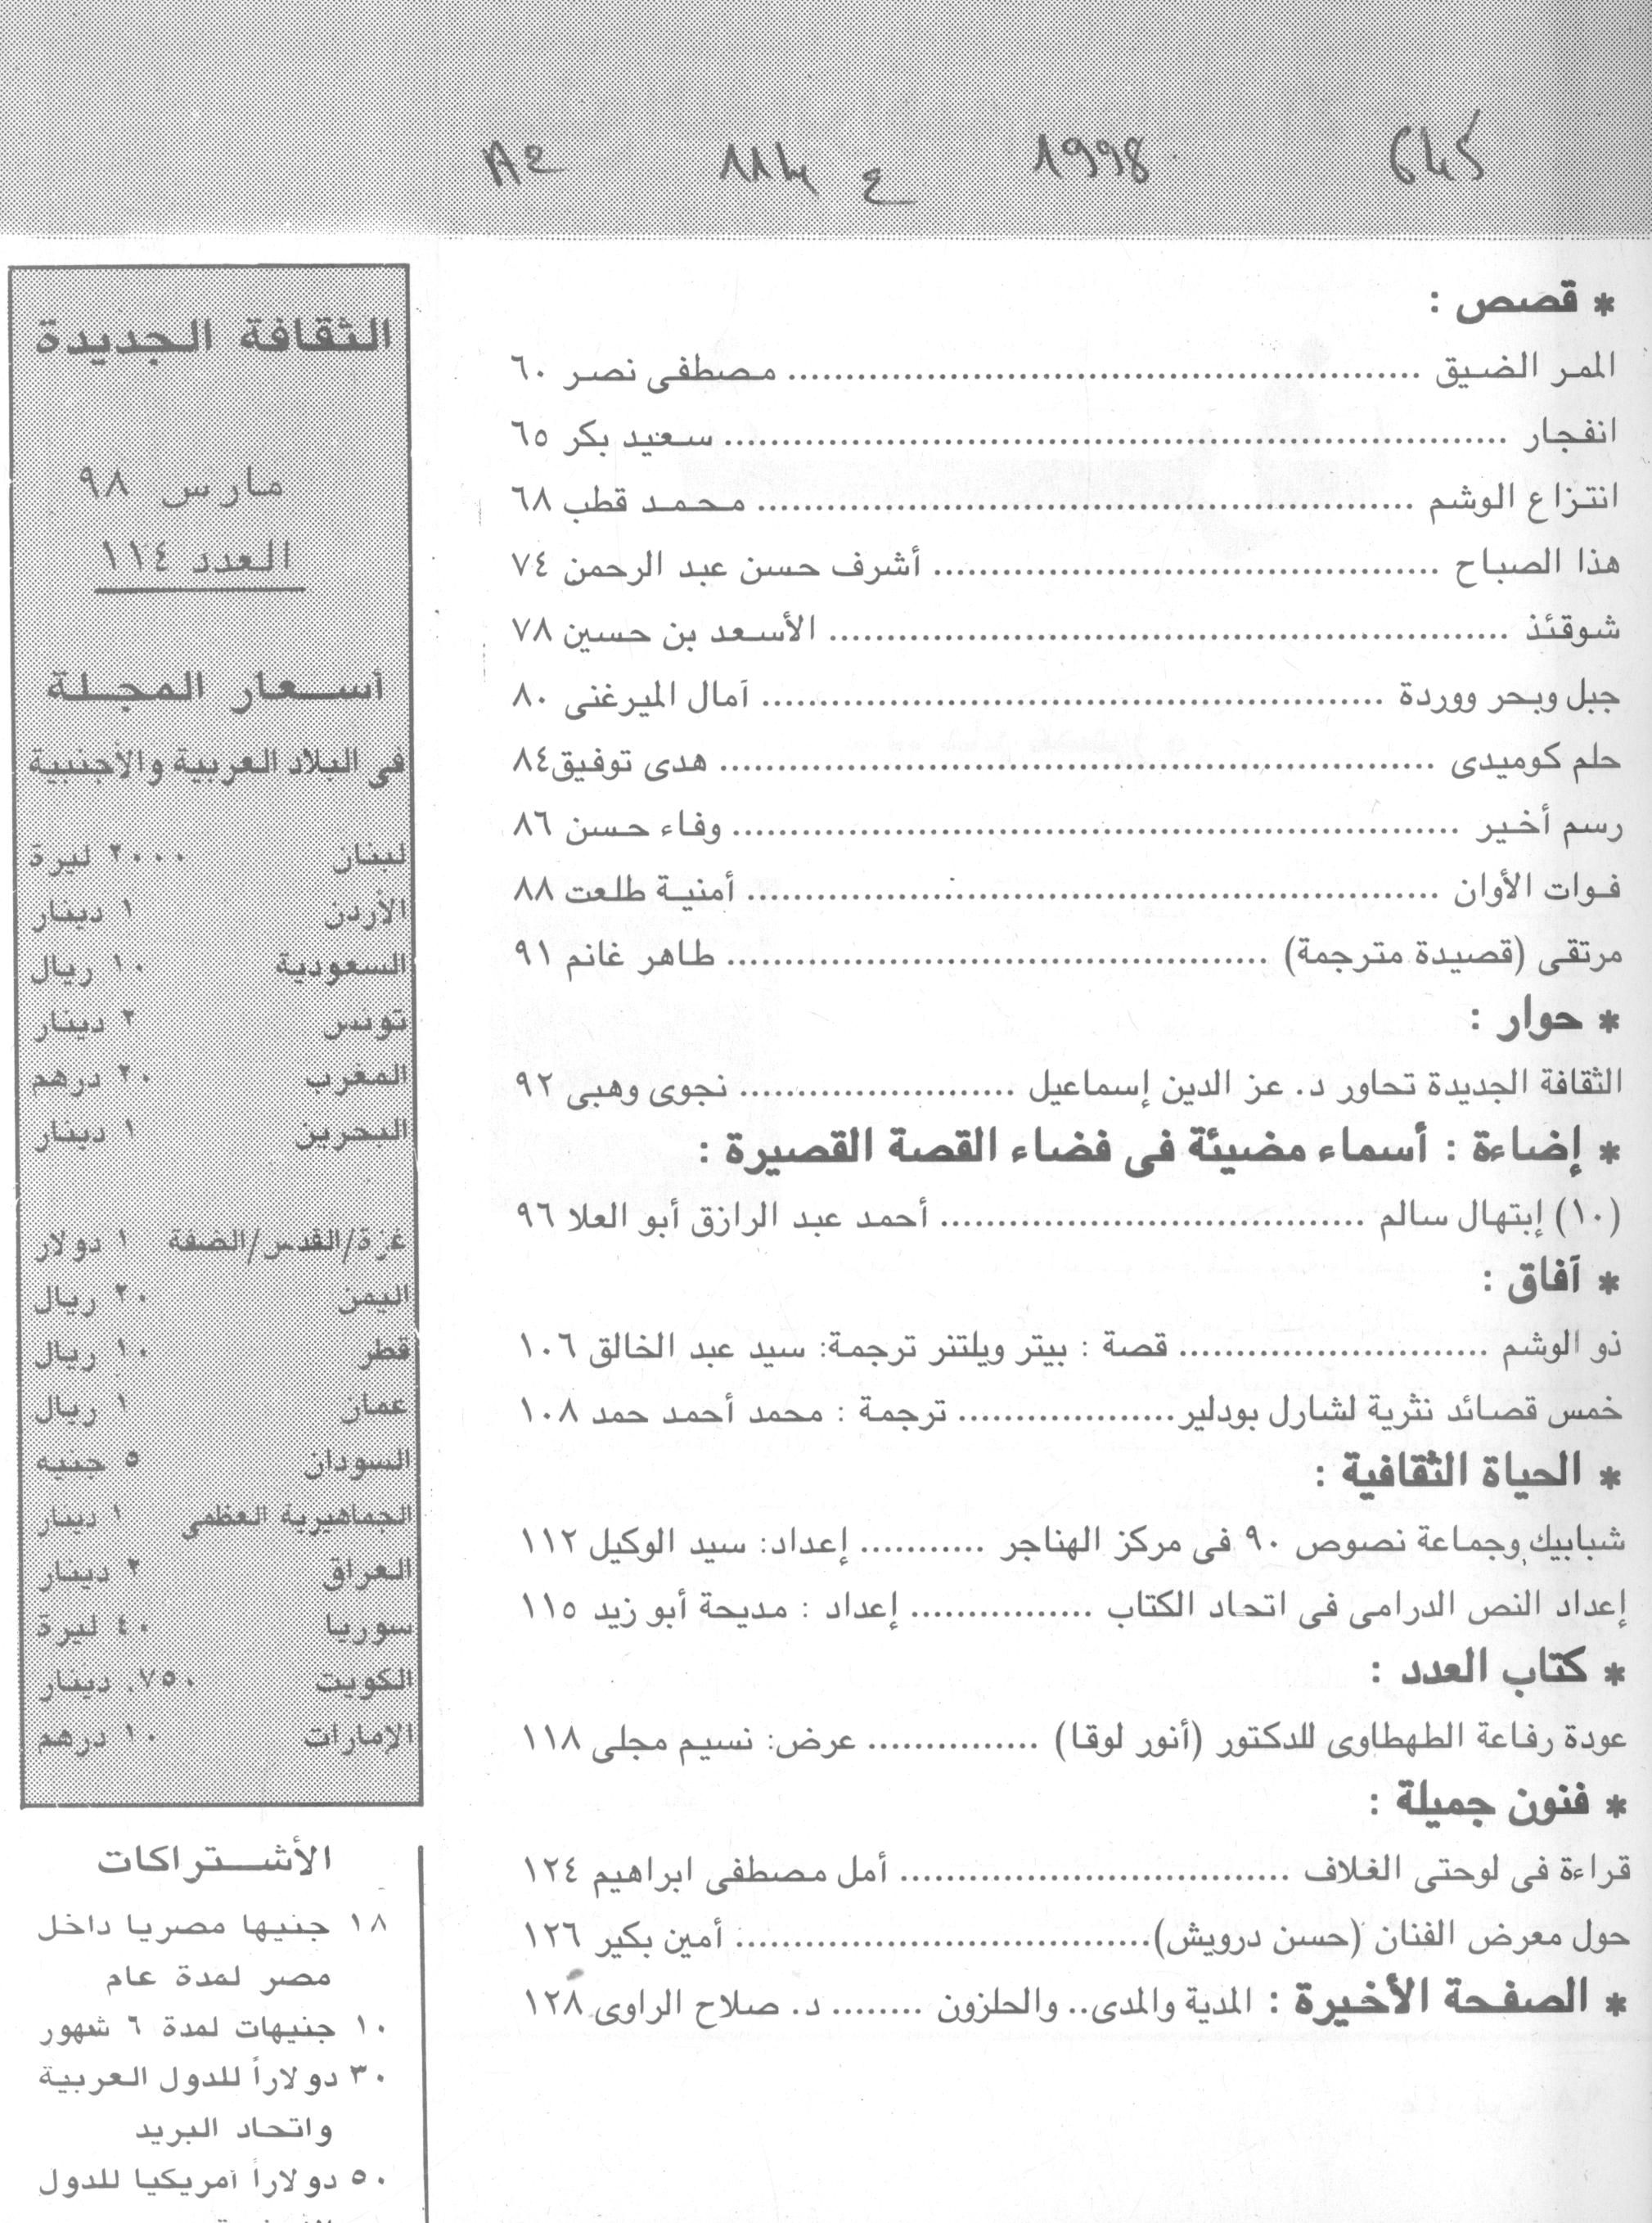 645 1998 ع 114 A2
* قصص :
الممر الضيق ........ مصطفى نصر ٦٠
انفجار ........ سعيد بكر ٦٥
انتزاع الوشم ........ محمد قطب ٦٨
هذا الصباح ........ أشرف حسن عبد الرحمن ٧٤
شوقئذ ........ الأسعد بن حسين ٧٨
جبل وبحر ووردة ........ آمال الميرغنى ٨٠
حلم كوميدى ........ هدى توفيق ٨٤
رسم أخير ........ وفاء حسن ٨٦
فوات الأوان ........ أمنية طلعت ٨٨
مرتقى (قصيدة مترجمة) ........ طاهر غانم ٩١
* حوار :
الثقافة الجديدة تحاور د. عز الدين إسماعيل ........ نجوى وهبى ٩٢
* إضاءة : أسماء مضيئة فى فضاء القصة القصيرة :
(١٠) إبتهال سالم ........ أحمد عبد الرازق أبو العلا ٩٦
* آفاق :
ذو الوشم ........ قصة : بيتر ويلتنر ترجمة: سيد عبد الخالق ١٠٦
خمس قصائد نثرية لشارل بودلير ........ ترجمة : محمد أحمد حمد ١٠٨
* الحياة الثقافية :
شبابيك وجماعة نصوص ٩٠ فى مركز الهناجر ........ إعداد: سيد الوكيل ١١٢
إعداد النص الدرامى فى اتحاد الكتاب ........ إعداد : مديحة أبو زيد ١١٥
* كتاب العدد :
عودة رفاعة الطهطاوى للدكتور (أنور لوقا) ........ عرض: نسيم مجلى ١١٨
* فنون جميلة :
قراءة فى لوحتى الغلاف ........ أمل مصطفى ابراهيم ١٢٤
حول معرض الفنان (حسن درويش) ........ أمين بكير ١٢٦
* الصفحة الأخيرة : المدية والمدى.. والحلزون ........ د. صلاح الراوى ١٢٨
الثقافة الجديدة
مارس ٩٨
العدد ١١٤
أسـعار المجـلة
فى البلاد العربية والأجنبية
لبنان ٢٠٠٠ ليرة
الأردن ١ دينار
السعودية ١٠ ريال
تونس ٢ دينار
المغرب ٢٠ درهم
البحرين ١ دينار
غزة/القدس/الضفة ١ دولار
اليمن ٢٠ ريال
قطر ١٠ ريال
عمان ١ ريال
السودان ٥ جنيه
الجماهيرية العظمى ١ دينار
العراق ٢ دينار
سوريا ٤٠ ليرة
الكويت ٧٥٠, دينار
الإمارات ١٠ درهم
الأشـتراكات
١٨ جنيها مصريا داخل
مصر لمدة عام
١٠ جنيهات لمدة ٦ شهور
٣٠ دولاراً للدول العربية
واتحاد البريد
٥٠ دولاراً امريكيا للدول